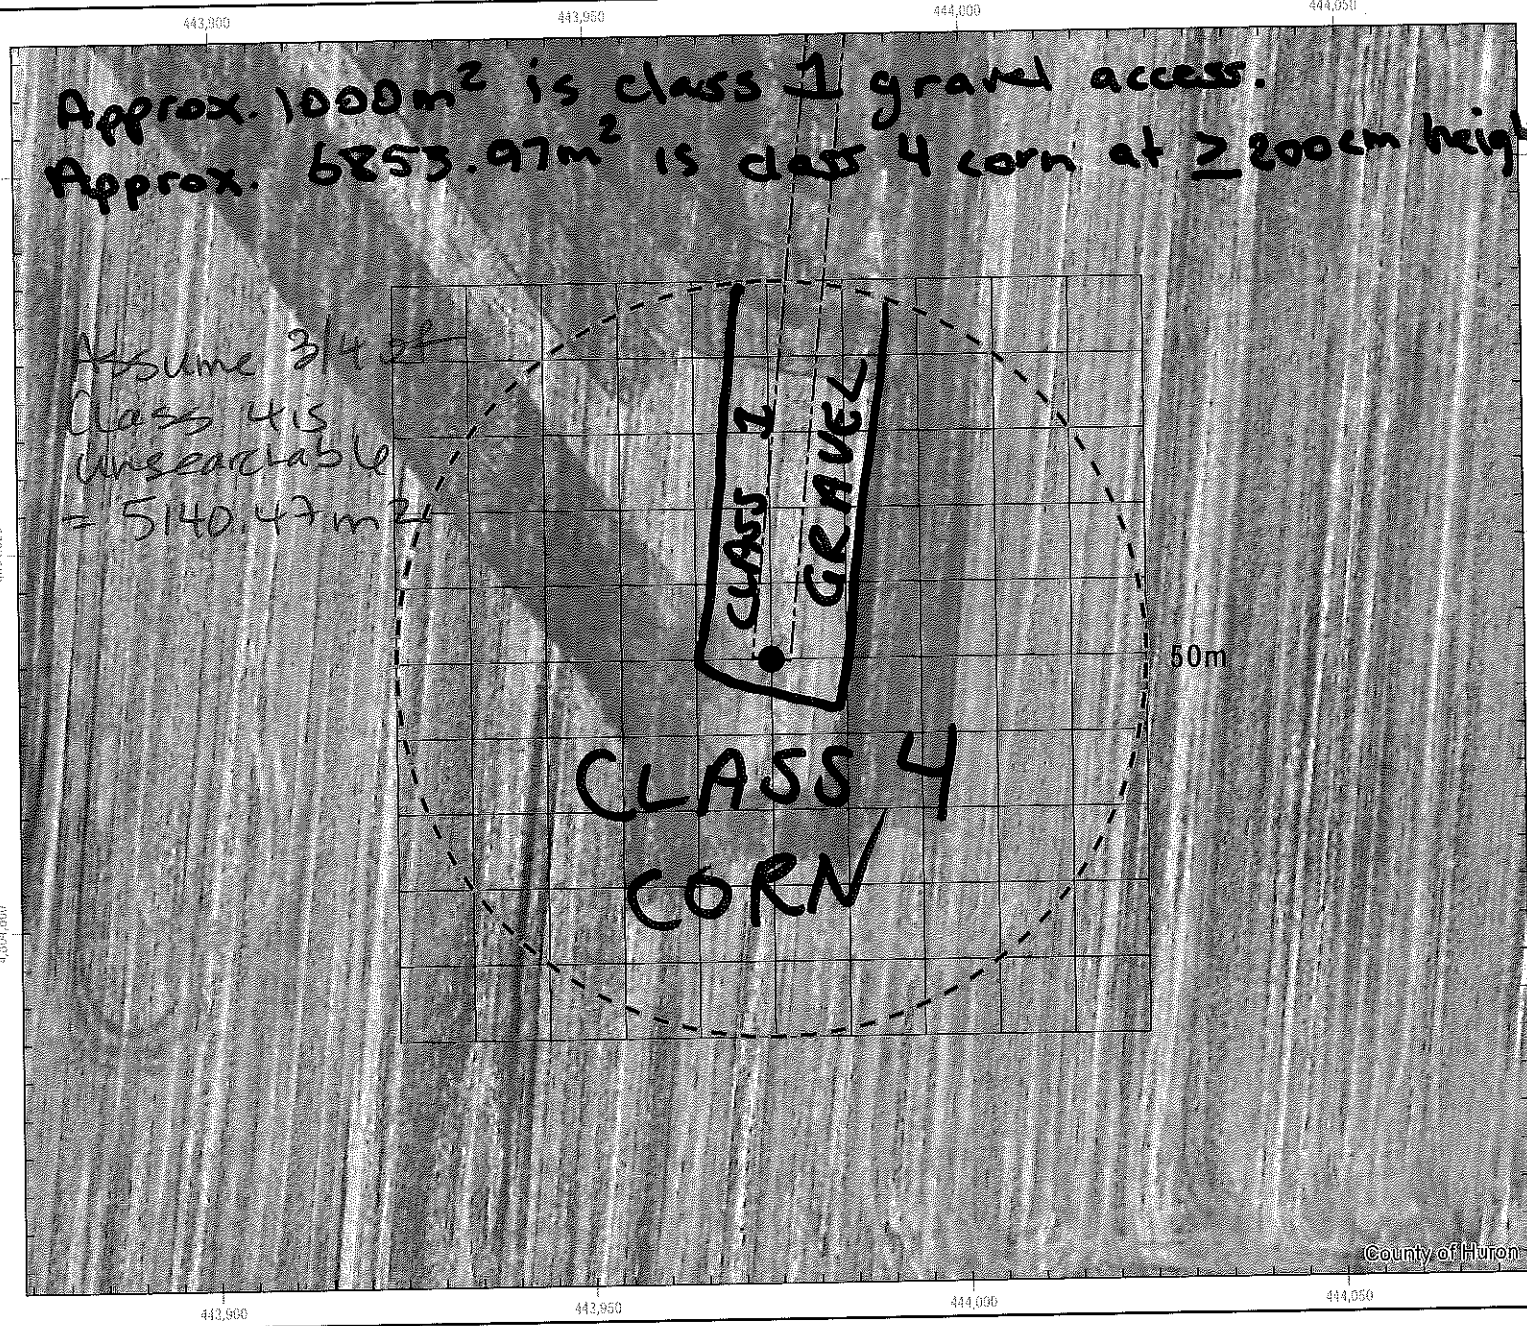 443,900 443,950 444,000 444,050
Approx. 1000m² is class 1 gravel access.
Approx. 6853.97m² is class 4 corn at ≥200cm heigh
Assume 3/4 of
Class 4 is
unsearchable
= 5140.47m²
CLASS 1
GRAVEL
50m
CLASS 4
CORN
County of Huron
443,900 443,950 444,000 444,050